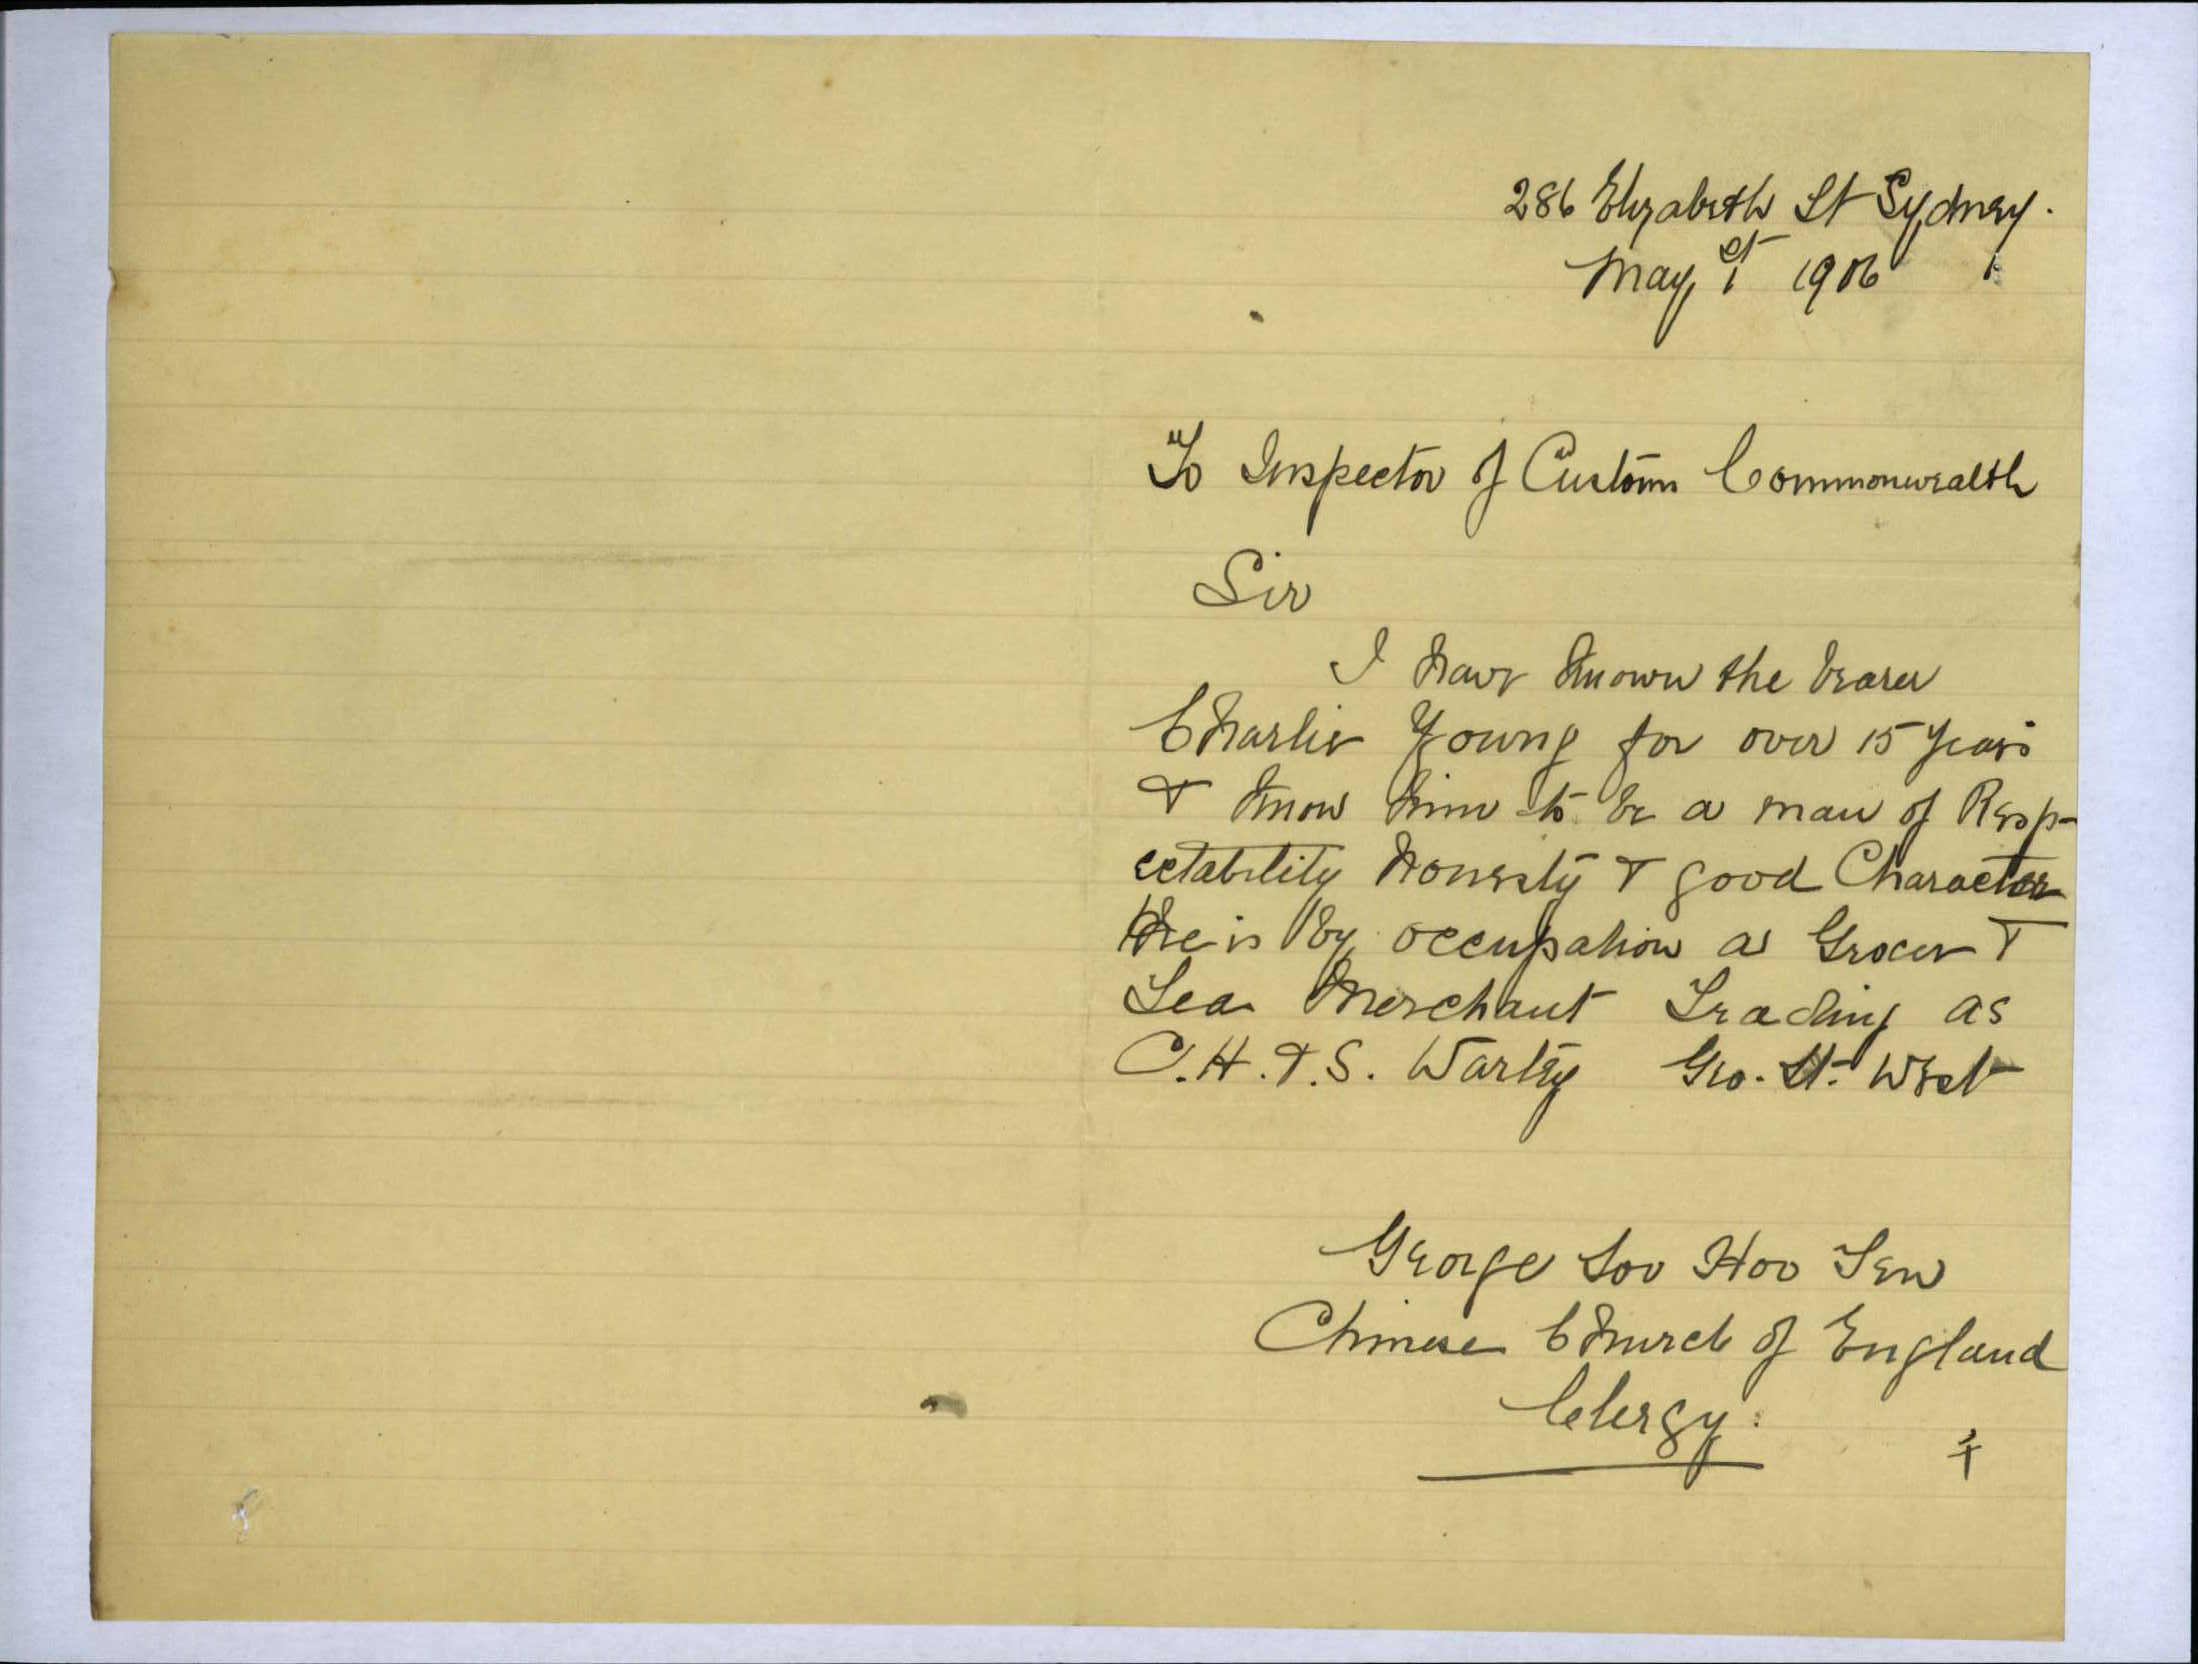 286 Elizabeth St Sydney.
May 1st 1906
To Inspector of Customs Commonwealth
Sir
I have known the bearer
Charlie Young for over 15 years
& know him to be a man of Resp-
ectability honesty & good Character
He is by occupation a Grocer &
Tea Merchant Trading as
C.H.T.S. Warley Geo. St. West
George Soo Hoo Ten
Chinese Church of England
Clergy.